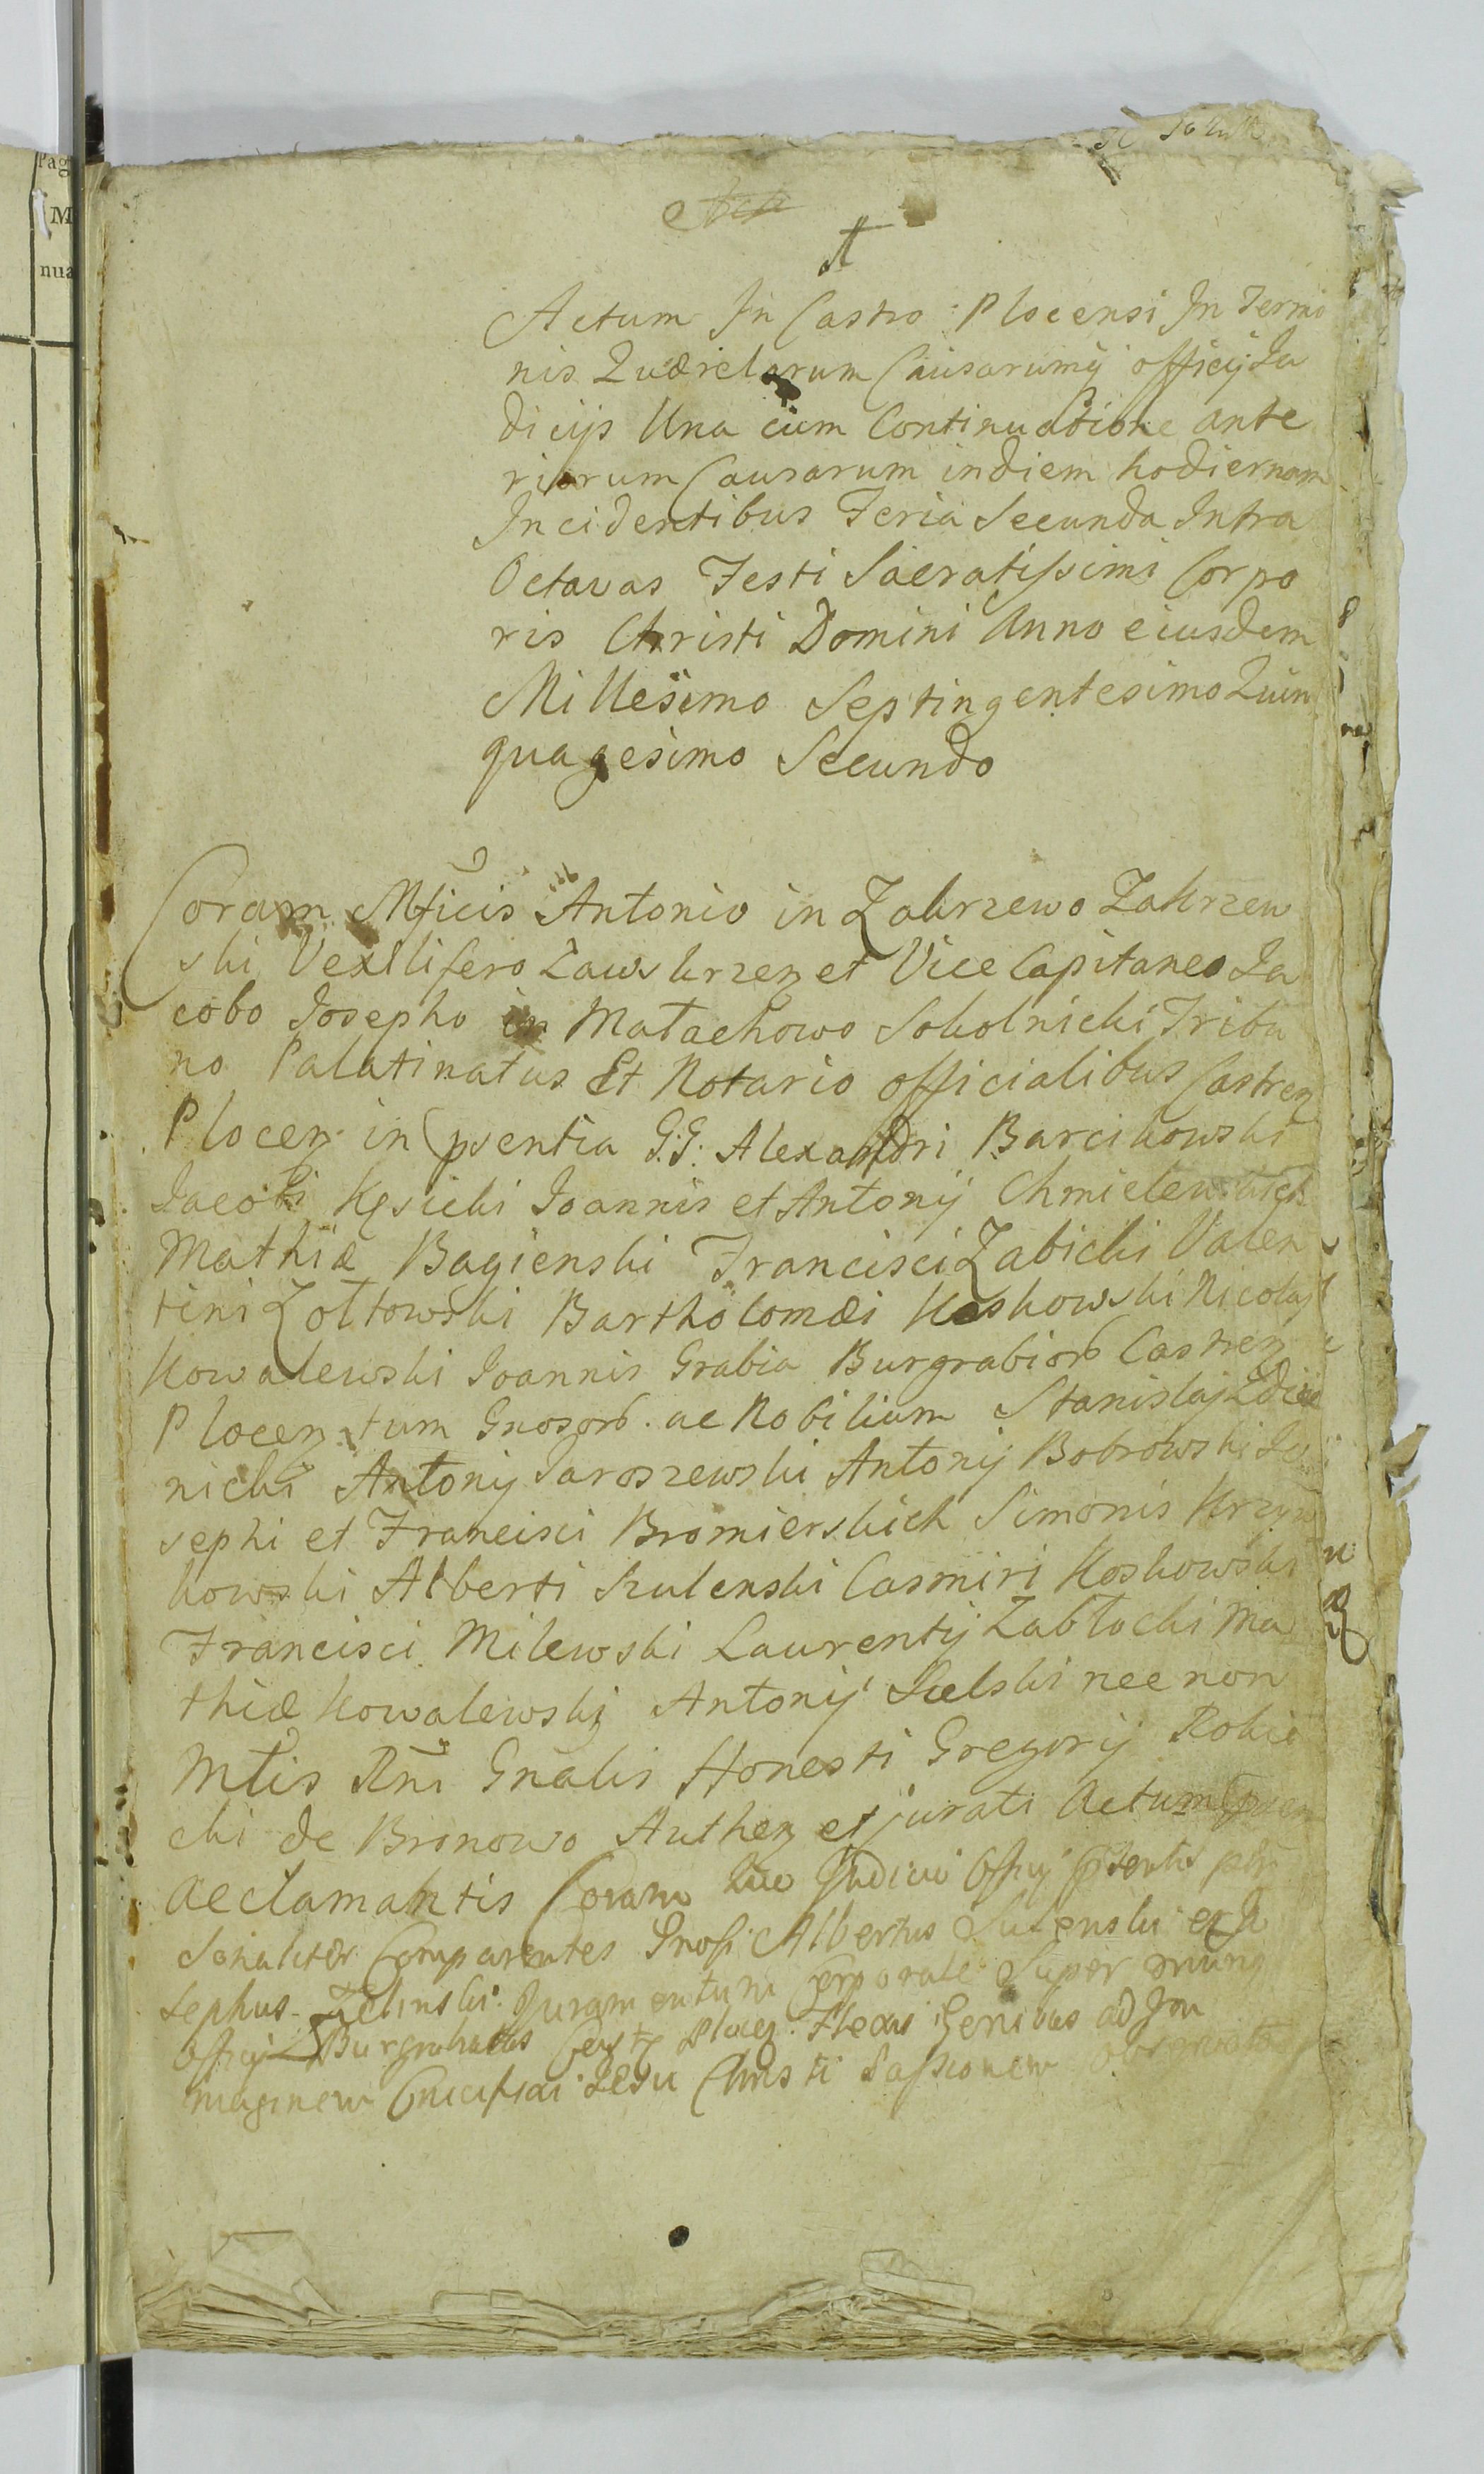 Pag
M
nua
Actum In Castro Plocensi In Termi
nis Quærelarum Causarumq̃ officij Ju
dicijs Una cum Continuatione ante
riorum Causarum indiem hodiernam
Incidentibus Feria Secunda Intra
Octavas Festi Sacratissimi Corpo
ris Christi Domini Anno eiusdem
Millesimo Septingentesimo Quin
quagesimo Secundo
Coram Mficis Antonio in Zakrzewo Zakrzew
ski Vexillifero Zawskrzen et Vice Capitaneo Ja
cobo Josepho in Małachowo Sokolnicki Tribu
no Palatinatus Et Notario officialibus Castren
Plocen in psentia G:G: Alexandri Barcikowski
Jacobi Kęsicki Joannis et Antonij Chmielewskich
Mathiæ Bagienski Francisci Żabicki Valen
tini Żołtowski Bartholomæi Koskowski Nicolaj
Kowalewski Joannis Grabia Burgrabior Castren
Plocen tum Gnosor. ac Nobilium Stanislaj
nicki Antonij Jaroszewski Antonij Bobrowski Jo
sephi et Francisci Bromierskich Simonis Krzyn
kowski Alberti Szulenski Casmiri Koskowski
Francisci Milewski Laurentij Zabłocki Ma
thiæ Kowalewski Antonij Sielski nec non
Mtis Rni Gnalis Honesti Gregorij Rokic
cki de Bronowo Authen et jurati Actum psen
Acclamantis Coram quo Judicio Officij psentis per
sonaliter Comparentes Gnosi Albertus Sulenski et Jo
sephus Zielinski Juramentum Corporale Super munus
Officij Burgrabiatus Plocen Flexis Genibus ad Im
maginem Crucifixi Jesu Christi Passionem